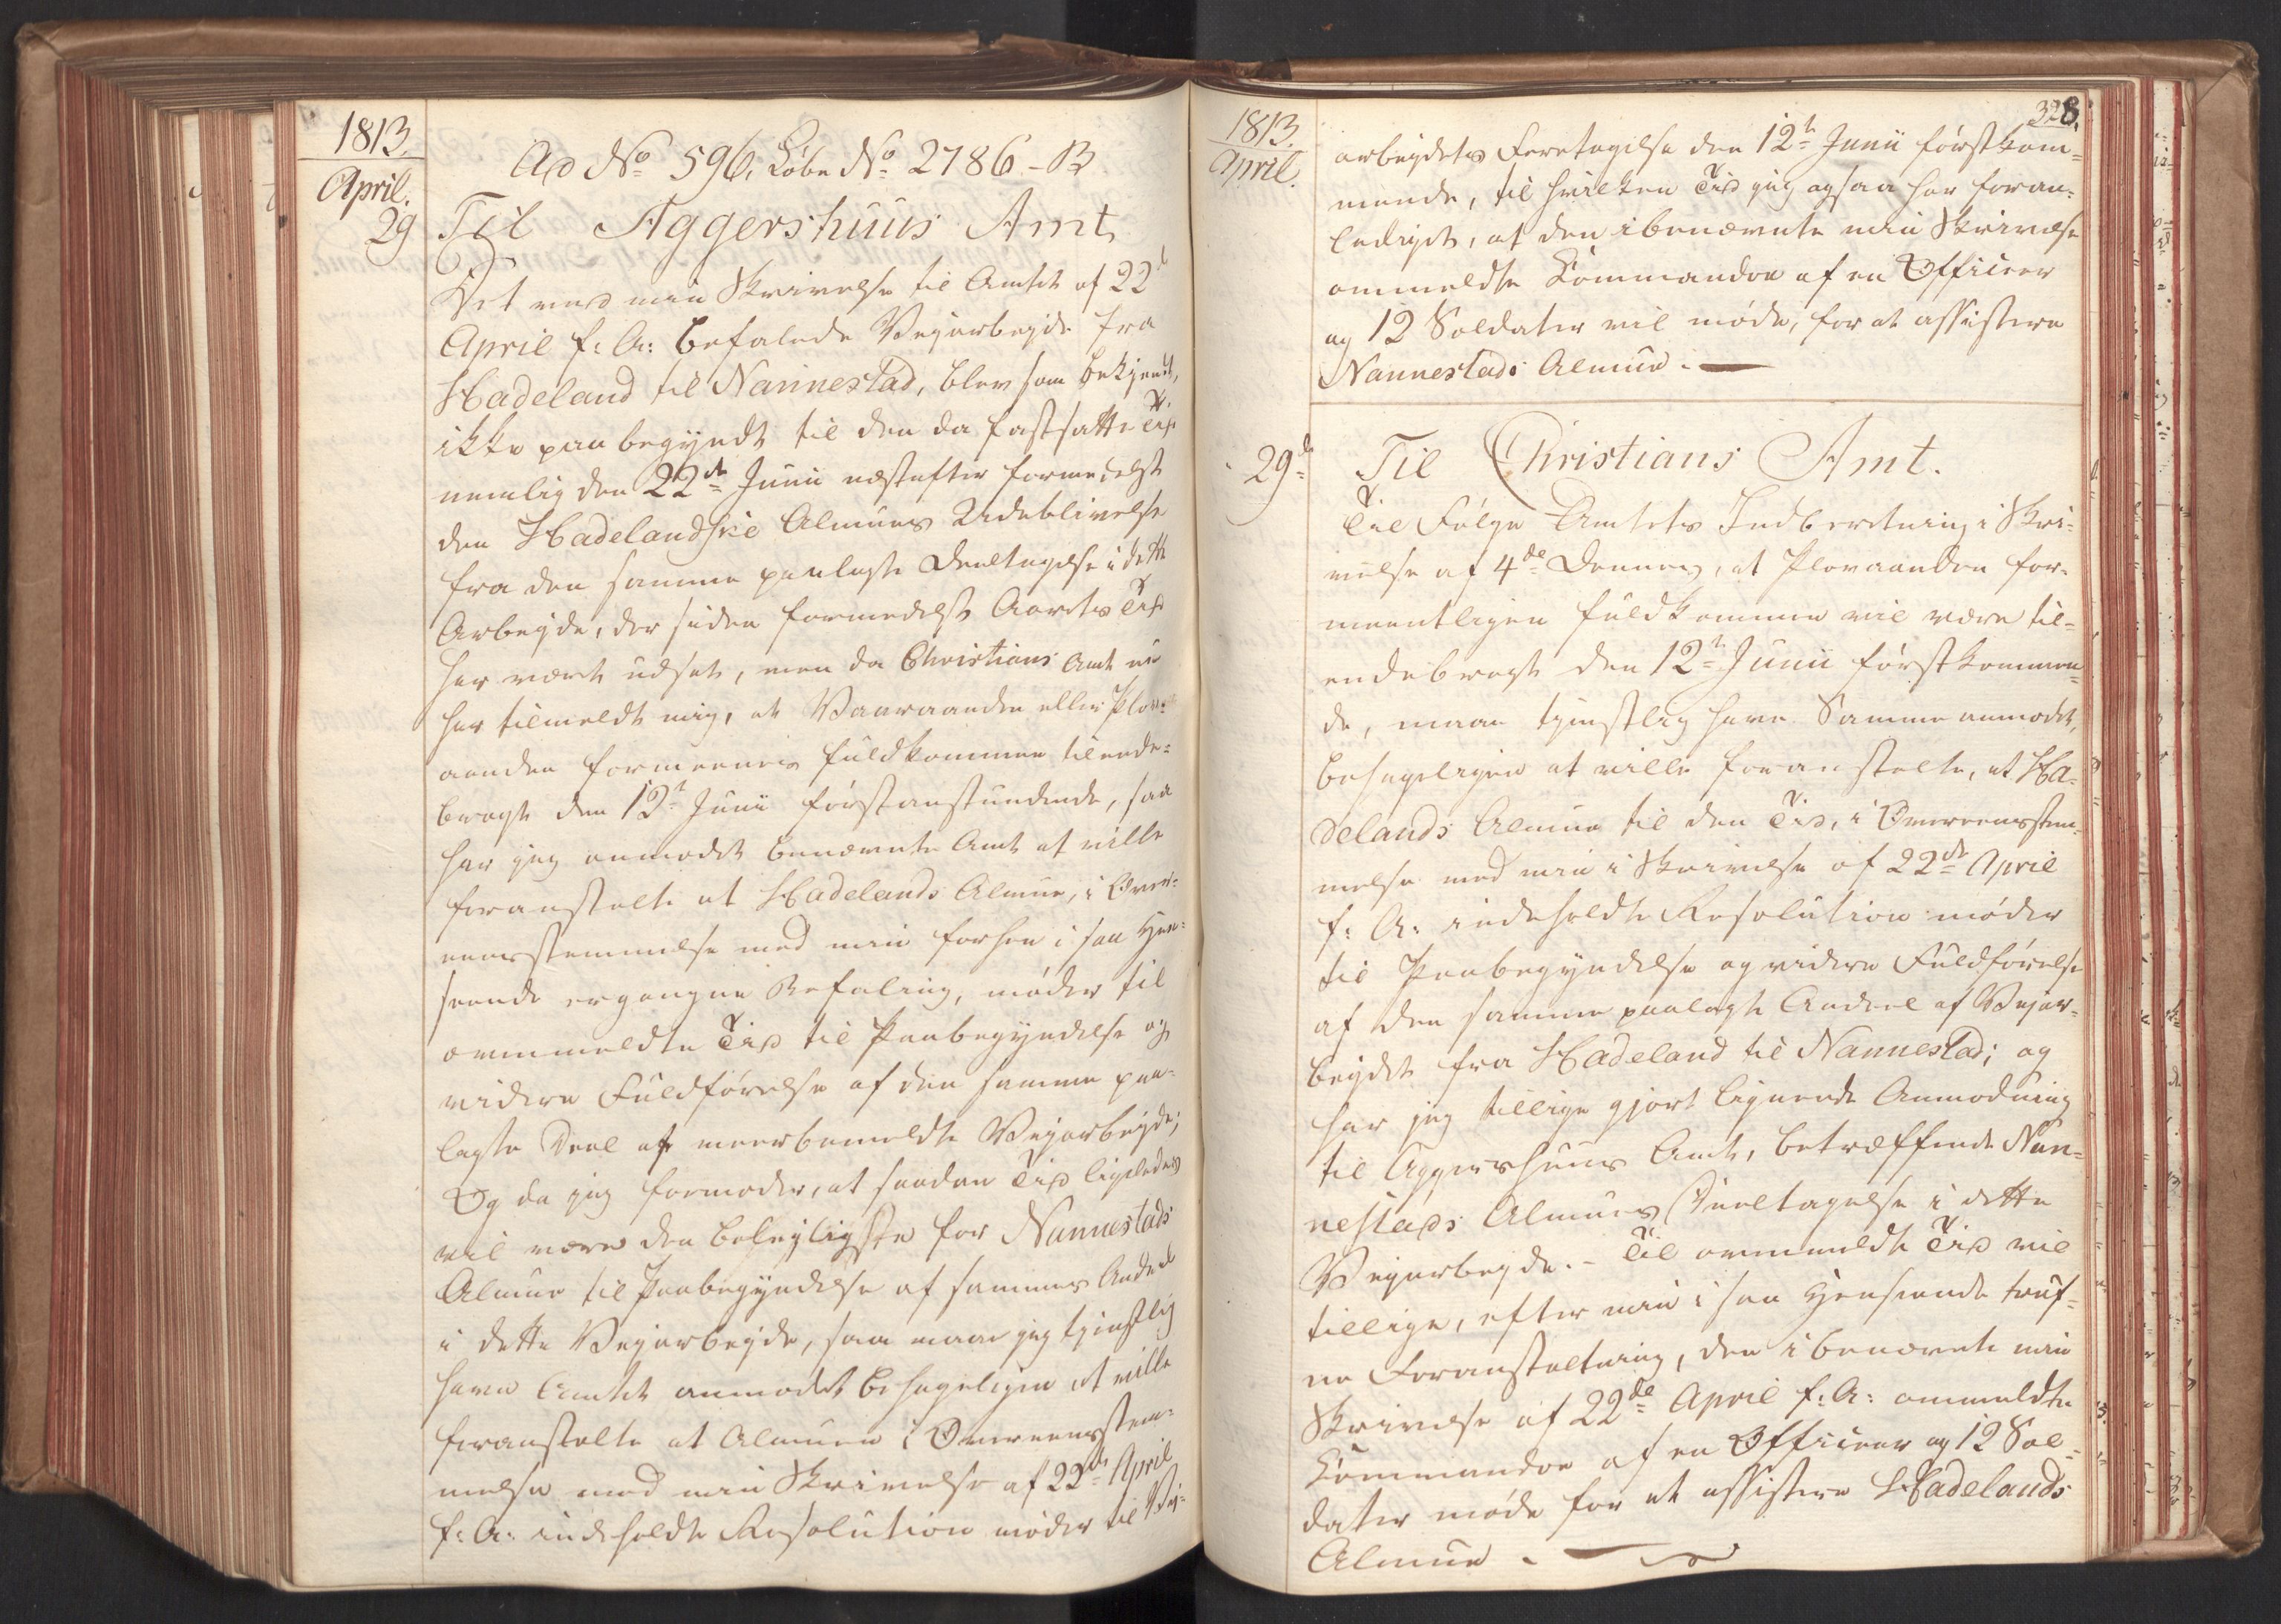 1813.
April.
29
Ad No 596, Løbe No 2786 - B
Til Aggershuus Amt
Det ved min Skrivelse til Amtet af 22de
April f: A: befalede Vejarbejde fra
Hadeland til Nannestad, blev som bekjendt,
ikke paabegyndt til den da fastsatte Tid
nemlig den 22de Junii næstefter formedelst
den Hadelandske Almues Udeblivelse
fra den samme paalagte Deeltagelse i dette
Arbejde, der siden formedelst Aarets Tid
har været udsat, men da Christians Amt nu
har tilmeldt mig, at Vaaraanden eller Plov-
aanden formeenes fuldkommen tilende-
bragt den 12te Junii førstanstundende, saa
har jeg anmodet benævnte Amt at ville
foranstalte at Hadelands Almue, i Over-
eensstemmelse med min forhen i saa Hen-
seende ergangne Befaling, møder til
ovenmeldte Tid til Paabegyndelse og
videre Fuldførelse af den samme paa-
lagte Deel af meerbemeldte Vejarbejde;
Og da jeg formoder, at saadan Tid ligeledes
vil være den belejligste for Nannestads
Almue til Paabegyndelse af sammes Andeel
i dette Vejarbejde, saa maae jeg tjenstlig
have Amtet anmodet behageligen at ville
foranstalte at Almuen i Overeensstem-
melse med min Skrivelse af 22de April
f: A: indeholdte Resolution møder til Vej-
1813.
April.
328.
arbejdets Foretagelse den 12te Junii førstkom-
mende, til hvilken Tid jeg ogsaa har foran-
lediget, at den i benævnte min Skrivelse
ommeldte Kommandoe af en Officeer
og 12 Soldater vil møde, for at assistere
Nannestads Almue. —
29de
Til Christians Amt.
Til Følge Amtets Indberetning i Skri-
velse af 4de Dennes, at Plovaanden for-
meentligen fuldkommen vil være til-
endebragt den 12te Junii førstkommen-
de, maae tjenstlig have Samme anmodet,
behageligen at ville foranstalte, at Ha-
delands Almue til den Tid, i Overeensstem-
melse med min i Skrivelse af 22de April
f: A: indeholdte Resolution møder
til Paabegyndelse og videre Fuldførelse
af den samme paalagte Andeel af Vejar-
bejdet fra Hadeland til Nannestad; og
har jeg tillige gjort lignende Anmodning
til Aggershuus Amt, betræffende Nan-
nestads Almues Deeltagelse i dette
Vejarbejde. - Til ovenmeldte Tid vil
tillige, efter min i saa Henseende truf-
ne Foranstaltning, den i benævnte min
Skrivelse af 22de April f: A: ommeldte
Kommandoe af en Officeer og 12 Sol-
dater møde for at assistere Hadelands
Almue. —